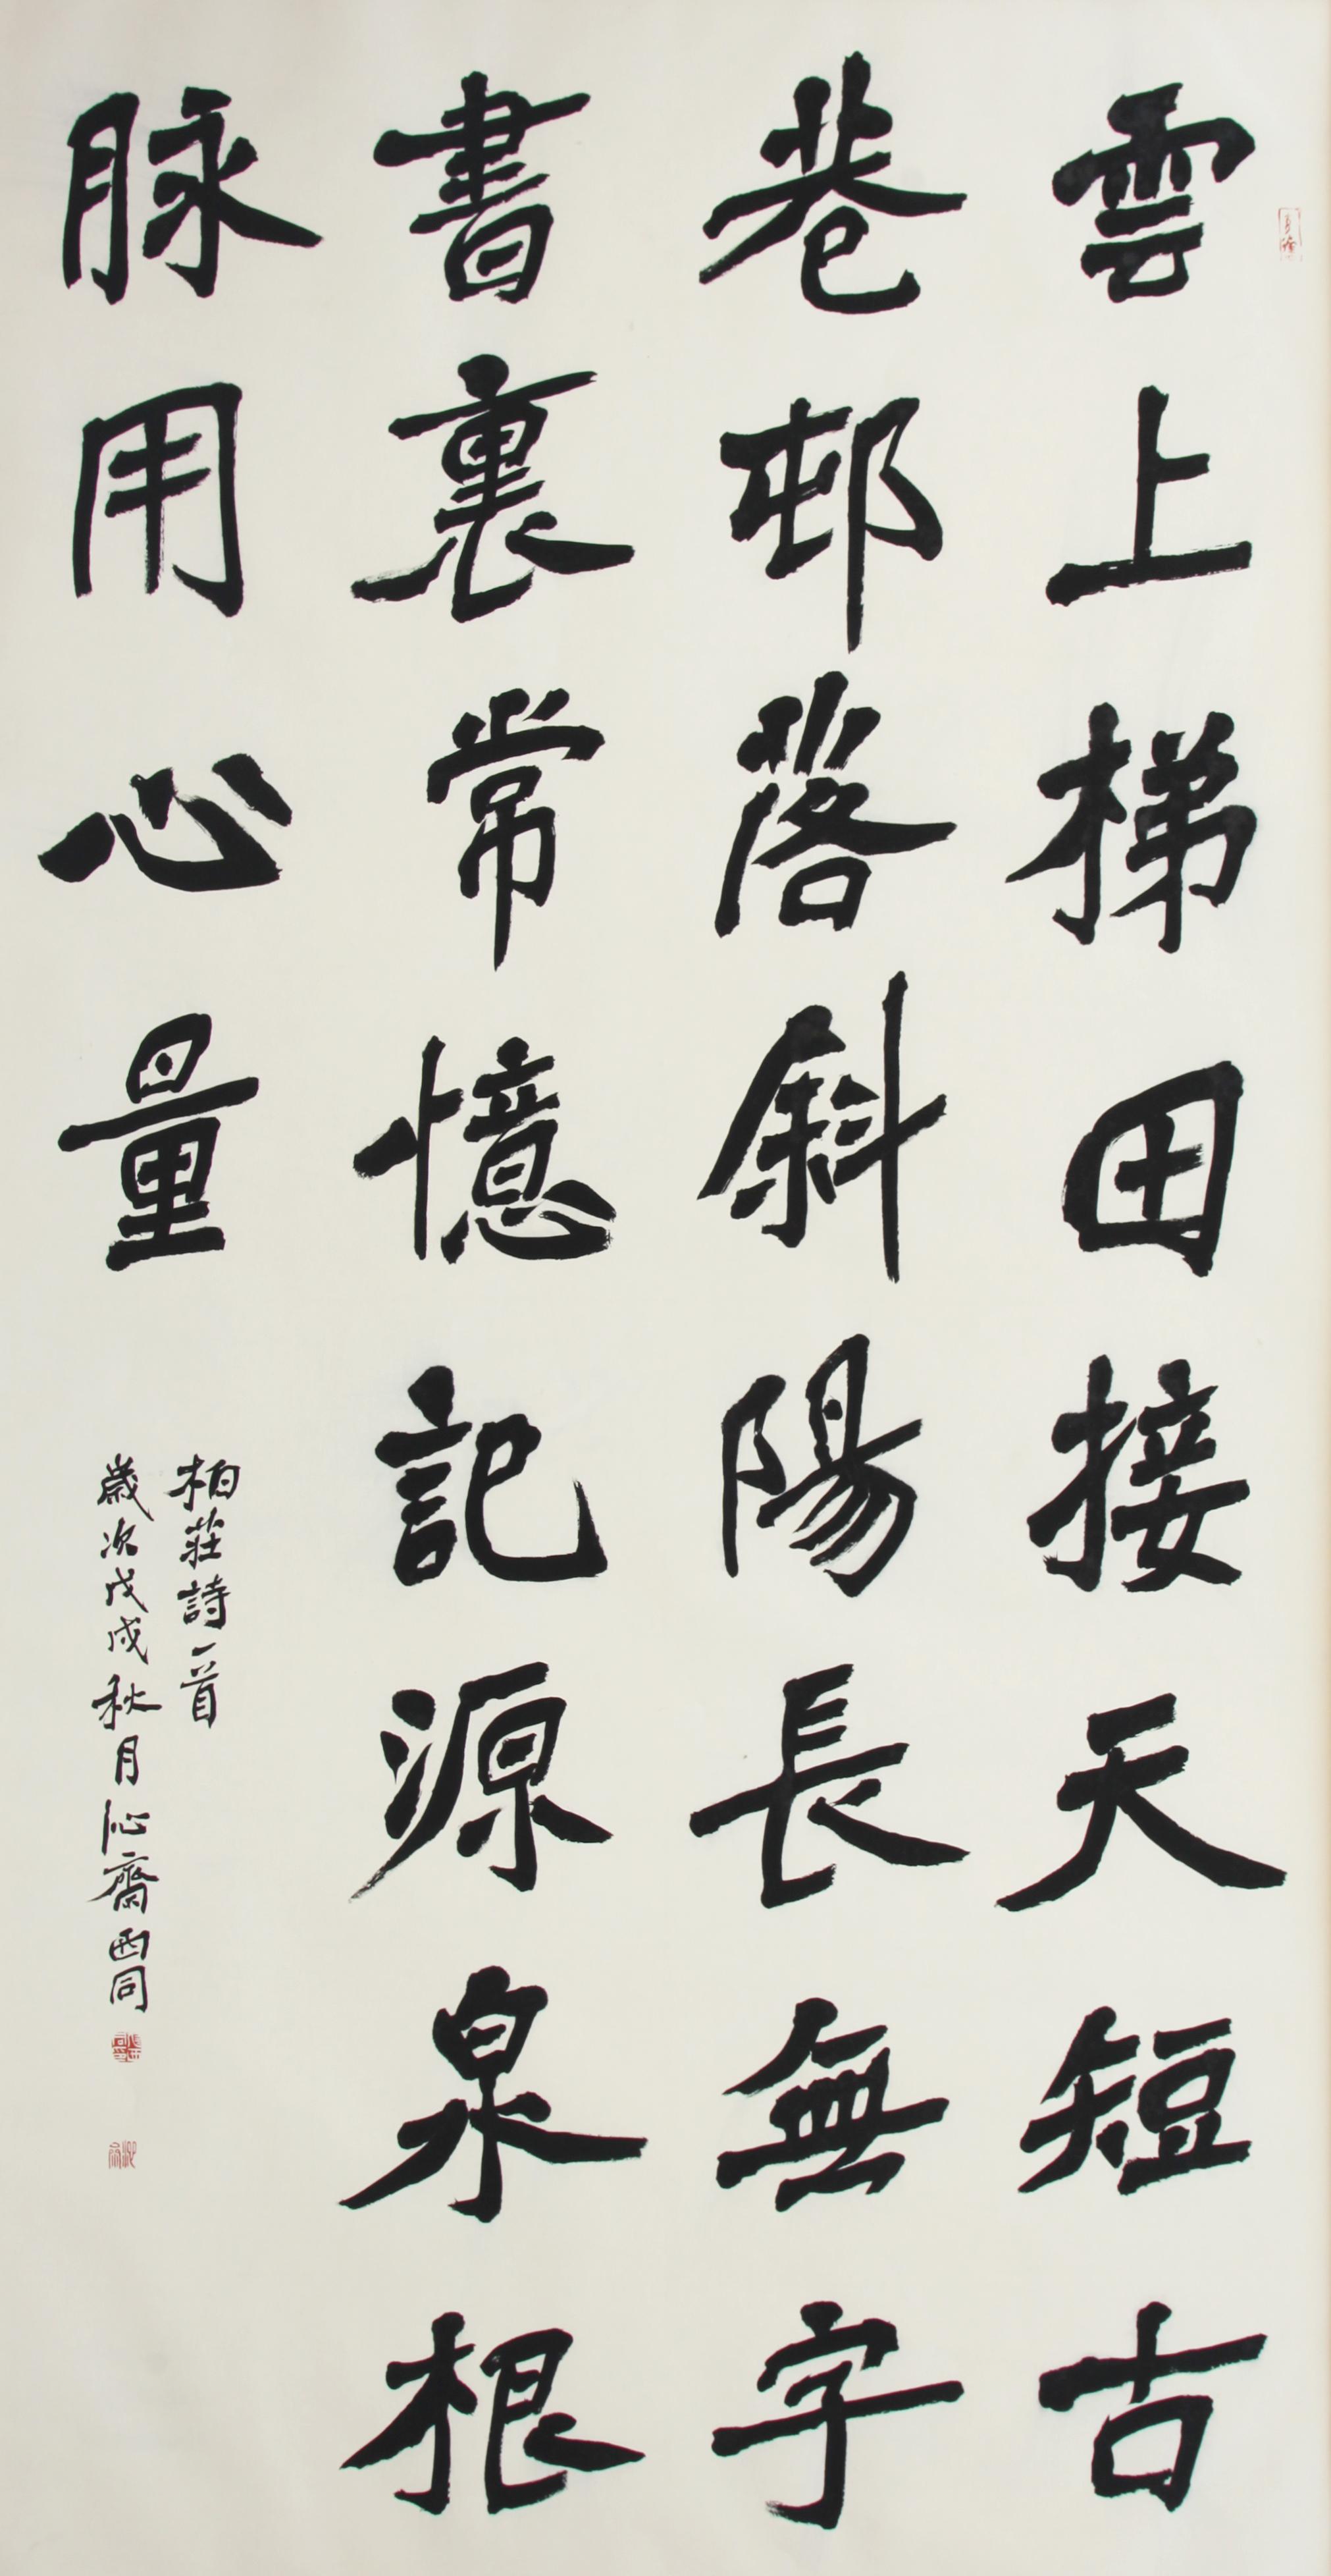 雲上梯田接天短古
巷邨落斜陽長無字
書裏常憶記源泉根
脉用心量
柏莊詩一首
歲次戊戌秋月沁齋西同